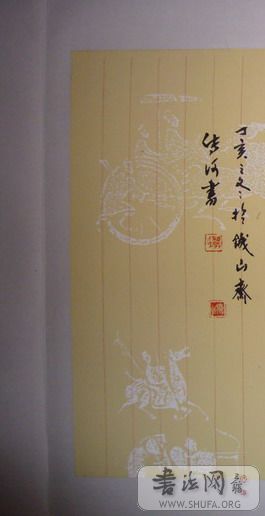 丁亥之冬於鐵山齋
河書
書法网
WWW.SHUFA.ORG